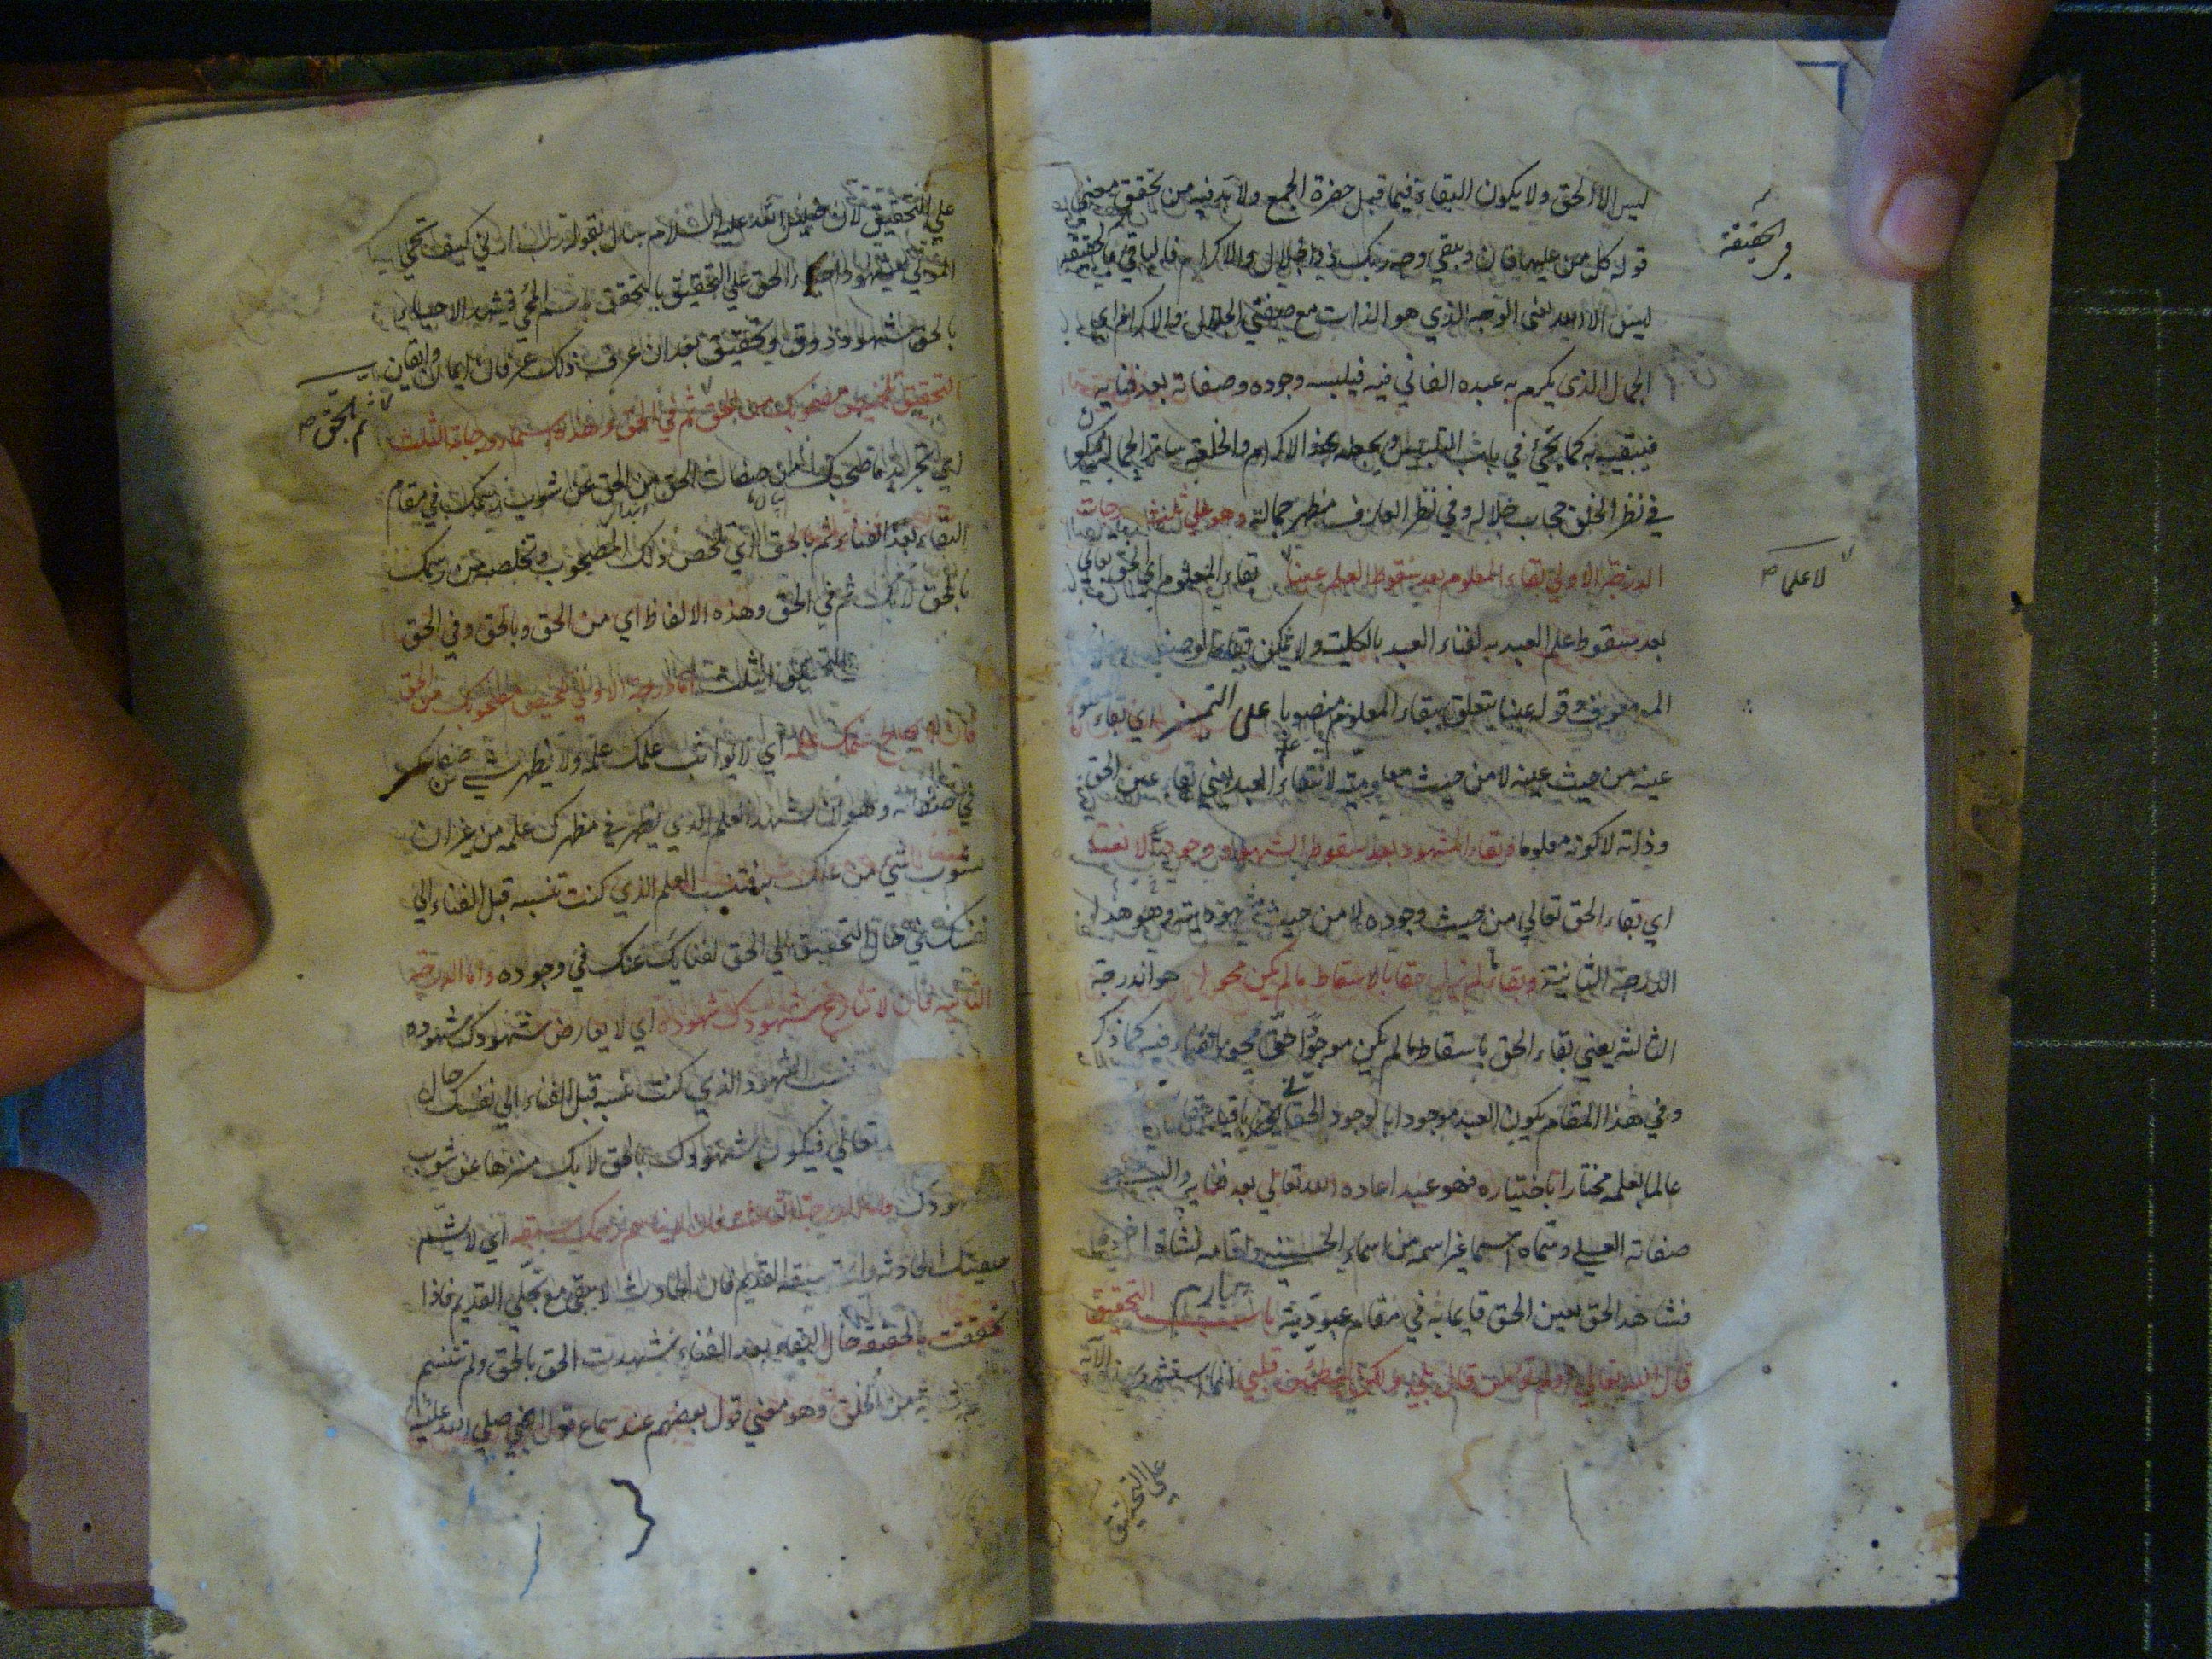 ليس الا الحق ولا يكون البقاء فيما قبل حضرة الجمع ولا بد فيه من تحقق معنى
قوله كل من عليها فان ويبقى وجه ربك ذو الجلال والاكرام فالباقي بالحقيقة
في الحقيقة
ليس الا الله يعني الوجه الذي هو الذات مع صفتي الجلال والاكرام اي
الجمال الذي يكرم به عبده الفاني فيه فيلبسه وجوده وصفاته بعد فنايه
فيبقيه به كما يجئ في باب التلبيس ويجعله بهذا الاكرام والخلعة ساتر الجماله ليكون
في نظر الخلق حجاب جلاله وفي نظر العارف مظهر جماله وهو علي ثلث درجات
الدرجة الاولي بقاء المعلوم بعد سقوط العلم عينا بقاء المعلوم اي الحق تعالي
لا علما صح
بعد سقوط علم العبد به لفناء العبد بالكلية ولا يمكن بقاء الوصف
المعلوم وقوله عينا يتعلق ببقاء المعلوم منصوبا على التميز اي بقاء
عينه من حيث عينه لا من حيث معلوميته لانتفاء علم العبد يعني بقاء عين الحق
وذاته لا كونه معلوما وبقاء المشهود بعد سقوط الشهود وجودا لا نعتا
اي بقاء الحق تعالي من حيث وجوده لا من حيث مشهوديته وهو هذا
الدرجة الثانية وبقاء من لم يزل حقا باسقاط ما لم يكن محوا هو الدرجة
الثالثة يعني بقاء الحق باسقاط ما لم يكن موجودا حتى محو الفناء فيه كما ذكر
وفي هذا المقام يكون العبد موجودا بوجود الحق باقيا ببقائه
عالما بعلمه مختارا باختياره فهو عبد اعاده الله تعالي بعد فنايه والبسه
صفاته العلي وسماه اسما غير اسمه من اسماء الحسني واقامه لنشاة اخري
فشاهد الحق بعين الحق قايما به في مقام عبوديته باب التحقيق
قال الله تعالي اولم تؤمن قال بلي ولكن ليطمئن قلبي انما استشهد بهذه الآية
على التحقيق
على التحقيق لان خليل الله عليه السلام سال بقوله رب ارني كيف تحيي
الموتي شهود احياء الحق علي التحقيق بالتحقق باسم المحيي فيشهد الاحياء
بالحق شهود ذوق وتحقيق بعد ان عرف ذلك عرفان ايمان وايقان
التحقيق تلخيص مصحوبك من الحق ثم في الحق وهذه اسماء درجاته الثلث
ثم بالحق صح
اي تجريد ما صحبك من صفات الحق من الحق عن شوب رسمك في مقام
البقاء بعد الفناء ثم بالحق الذي يلخص ذلك المصحوب وتخلصه من رسمك
بالحق لا بك ثم في الحق وهذه الالفاظ اي من الحق وبالحق وفي الحق
التحقيق الثلث اما درجة الاولي تلخيص مصحوبك من الحق
فان لا يخالج علمك علمه اي لا يواثب علمك علمه ولا يظهر شي من صفاتك
في صفاته وهو ان تشهد العلم الذي يظهر في مظهرك علمه من غير ان
تشوبه بشي من علمك فتنسب العلم الذي كنت تنسبه قبل الفناء الي
نفسك في حال التحقيق الي الحق لفنايك عنك في وجوده واما الدرجة
الثانية فان لا تنازع شهودك شهوده اي لا يعارض شهودك شهوده
تنسب الشهود الذي كنت تنسبه قبل الفناء الي نفسك حال
تعالي فيكون شهودك بالحق لا بك منزها عن شوب
شهودك واما الدرجة الثالثة فان لا يناسم رسمك سبقه اي لا يشم
صفتك الحادثة رايحة سبقه القديم فان الحادث لا يبقي مع تجلي القديم فاذا
تحققت بالحقيقة حال البقاء بعد الفناء شهدت الحق بالحق ولم تتنسم
من الخلق وهو معني قول بعضهم عند سماع قول النبي صلي الله عليه